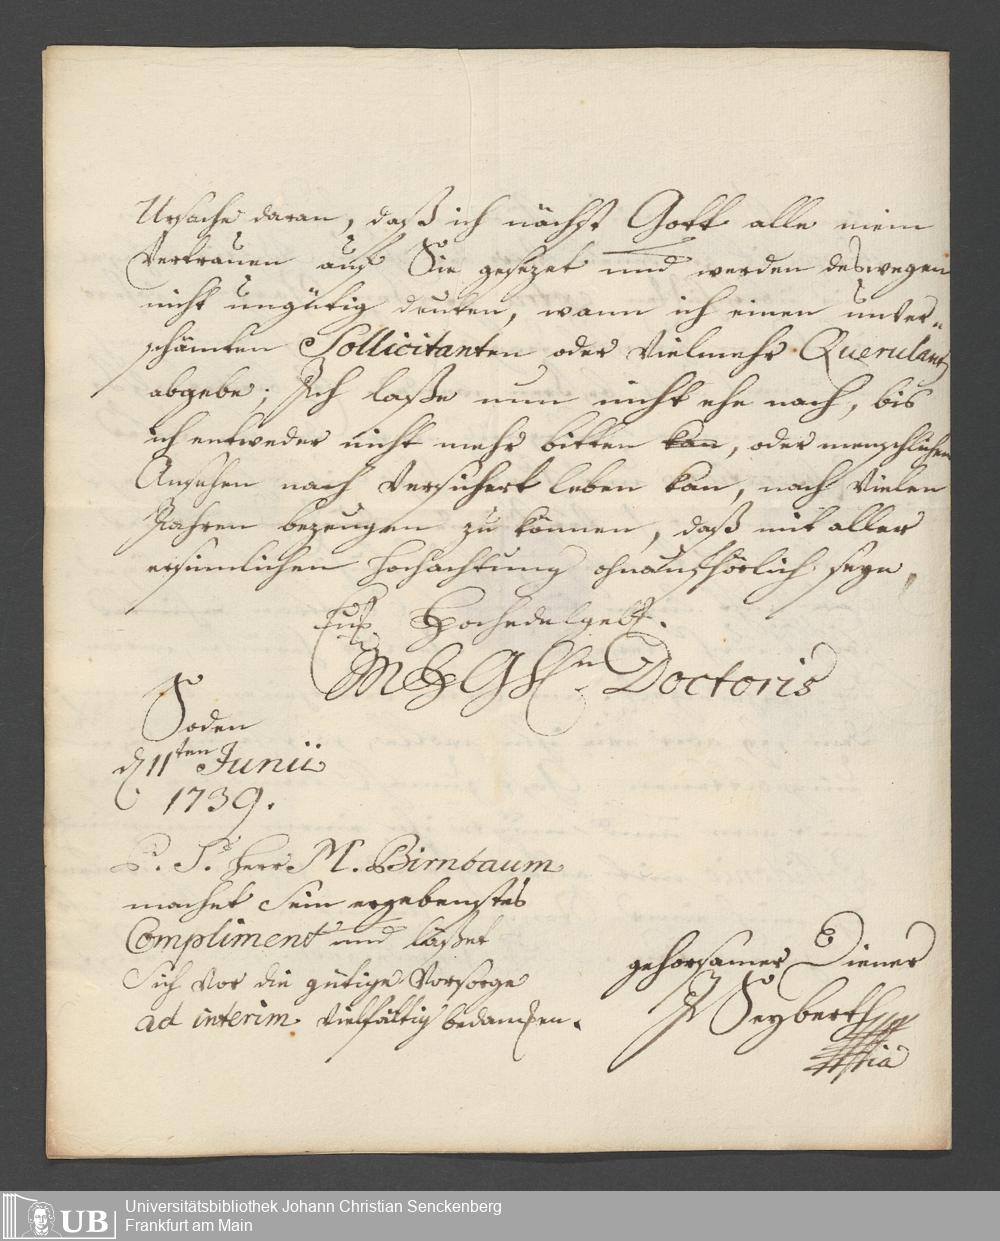 Ursache daran, daß ich nächst Gott alle mein
Vertrauen auf Sie gesezet und werden deswegen
nicht ungütig deuten, wann ich einen unver-
schämten Sollicitanten oder vielmehr Querulant
abgebe; Ich laße nun nicht ehe nach, bis
ich entweder nicht mehr bitten kan, oder menschlichen
Ansehen nach versichert leben kan, nach vielen
Jahren bezeugen zu können, daß mit aller
ersinnlichen Hochachtung ohnaufhörlich seye,
Euer Hochedelgeb.
MHGH Doctoris
Soden
d 11ten Junii
1739.
P. S. Herr M. Birnbaum
machet sein ergebenstes
Compliment und läßet
sich vor die gütige Vorsorge
ad interim vielfältig bedancken.
gehorsamer Diener
J Seyberth
Universitätsbibliothek Johann Christian Senckenberg
Frankfurt am Main
UB